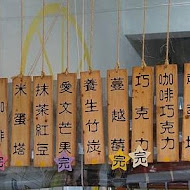 米蛋塔
抹茶紅豆
愛文芒果
完
養生竹炭
蔓越莓
完
巧克力
完
咖啡巧克力